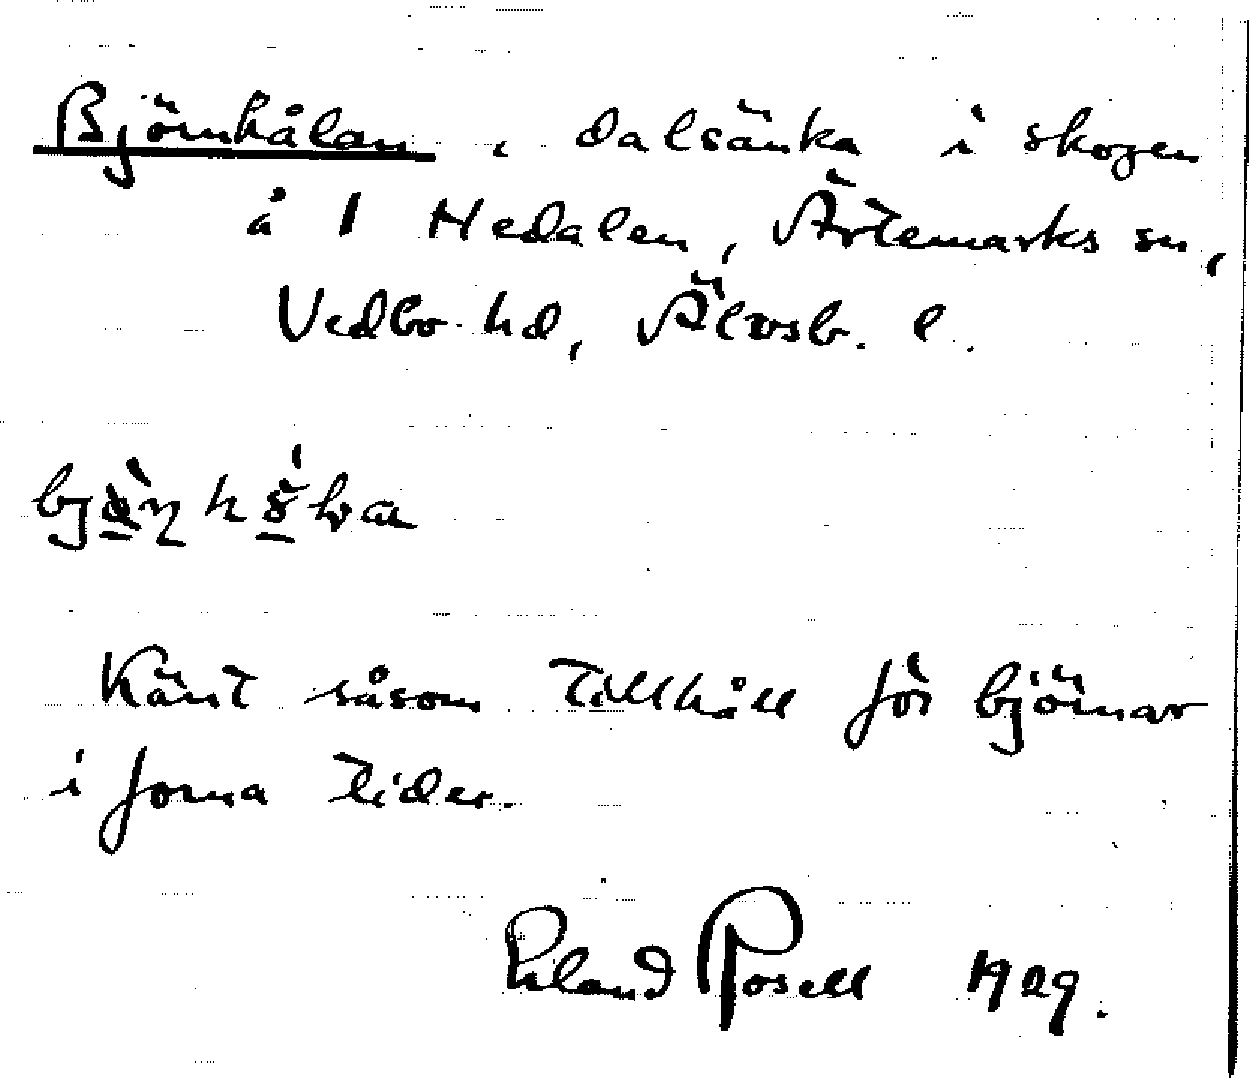 Björnhålan, dalsänka i skogen
å 1 Nedalen, Ärtemarks sn,
Vedbo hd, Älvsb. l.
Känt såsom tillhåll för björnar
i forna tider.
Erland Rosell 1929.